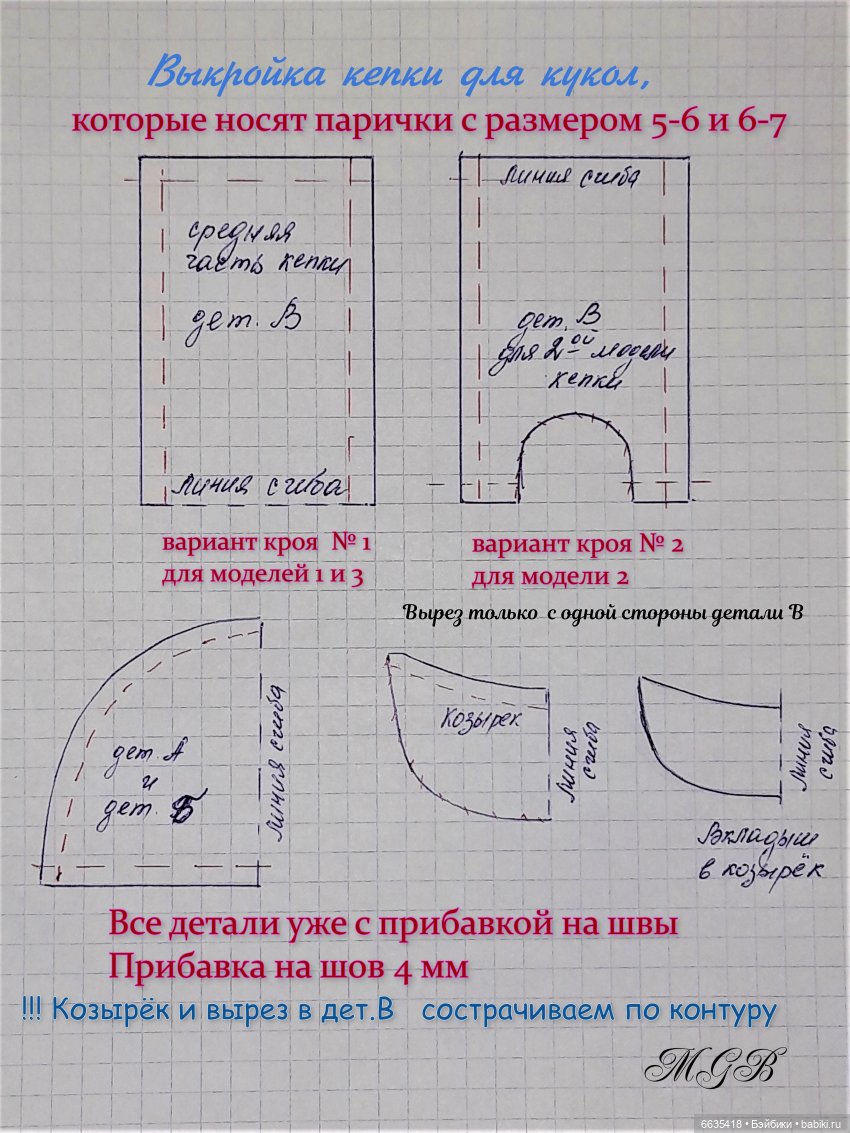 Выкройка кепки для кукол,
которые носят парички с размером 5-6 и 6-7
средняя
часть кепки
дет. В
линия сгиба
линия сгиба
дет. В
для 2ой модели
кепки
вариант кроя № 1
для моделей 1 и 3
вариант кроя № 2
для модели 2
Вырез только с одной стороны детали В
дет. А
и
дет. Б
линия сгиба
Козырек
линия
сгиба
линия
сгиба
Вкладыш
в козырёк
Все детали уже с прибавкой на швы
Прибавка на шов 4 мм
!!! Козырёк и вырез в дет.В сострачиваем по контуру
MGB
6635418 • Бэйбики • babiki.ru